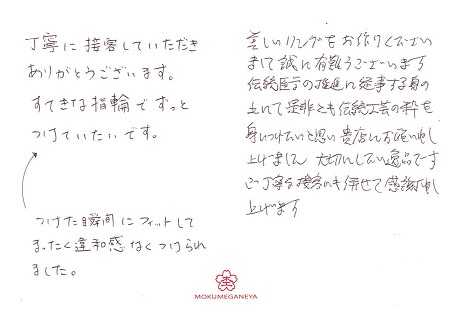 丁寧に接客していただき
ありがとうございます。
すてきな指輪でずっと
つけていたいです。
つけた瞬間にフィットして
まったく違和感なくつけられ
ました。
美しいリングをお作りください
まして誠に有難うございます
伝統医学の推進に従事する身の
上にて是非とも伝統工芸の粋を
身につけたいと思い貴店にお願い申し
上げました 大切にしたい逸品です
ご丁寧な接客にも併せて感謝申し
上げます
MOKUMEGANEYA